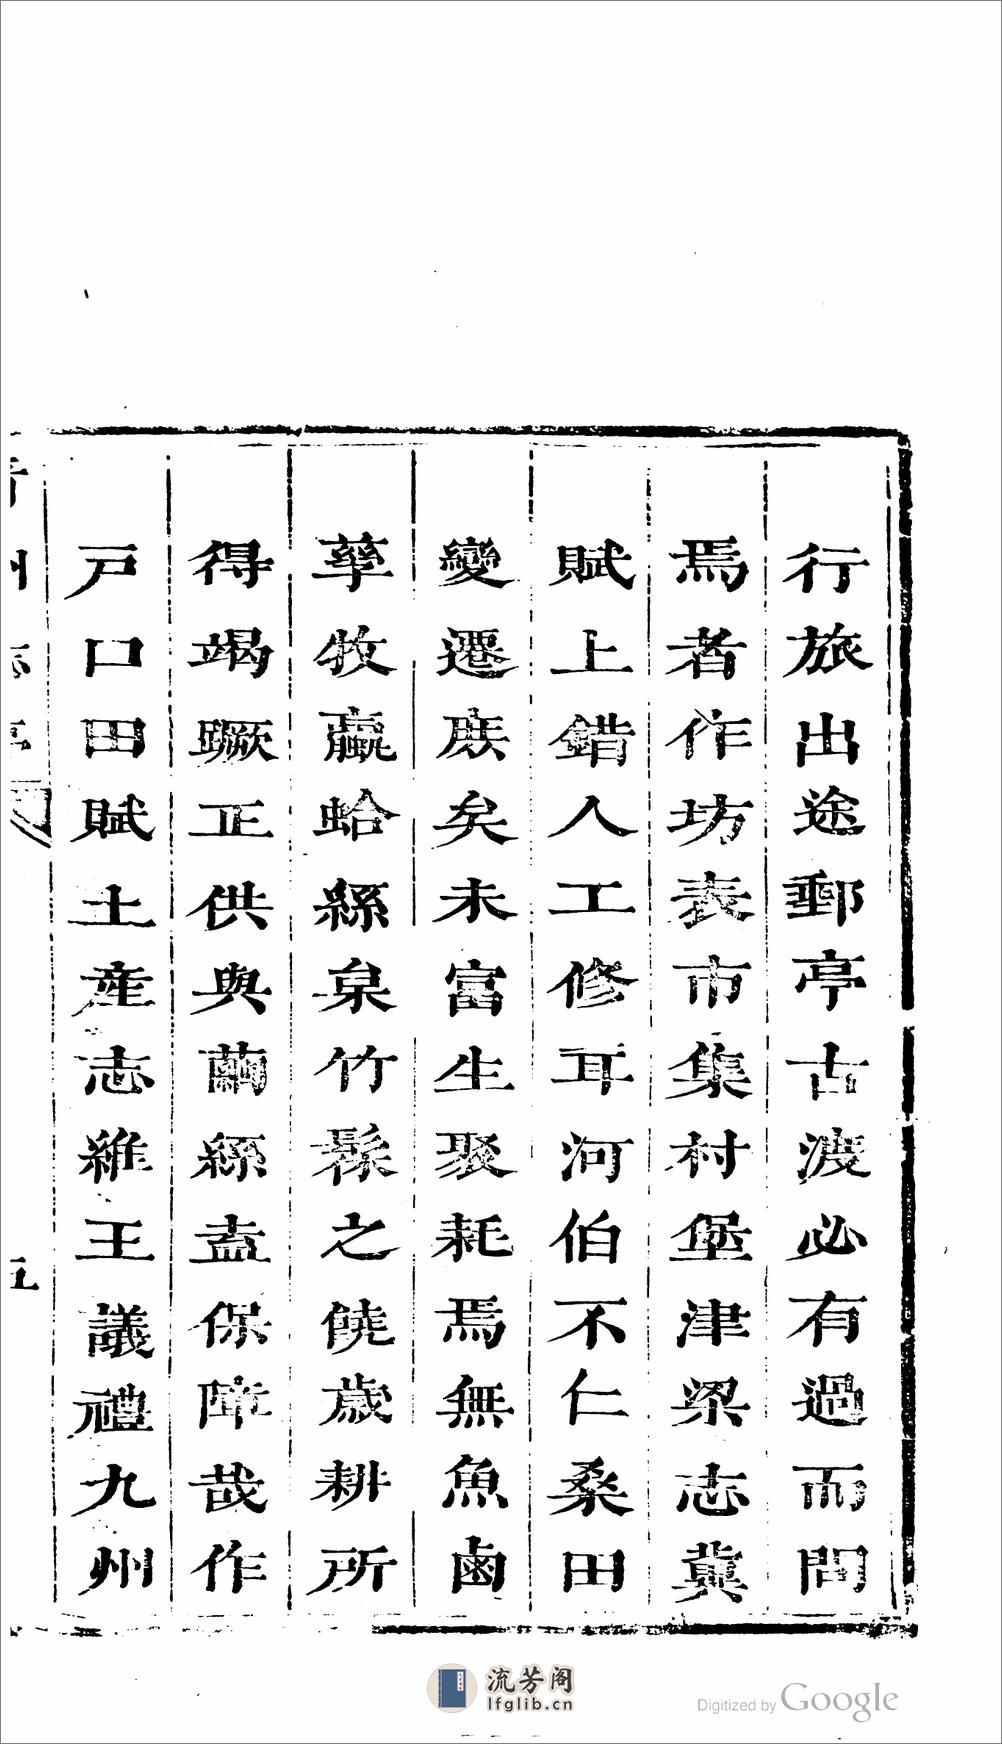 行旅出途郵亭古渡必有過而問
焉者作坊表市集村堡津梁志冀
賦上錯人工修耳河伯不仁桑田
變遷庻矣未富生聚耗焉無魚鹵
莘牧蠃蛤絲枲竹髹之饒歲耕所
得竭蹶正供與繭絲盍保障哉作
戶口田賦土產志維王議禮九州
州志
五
流芳阁
lfglib.cn
Digitized by Google